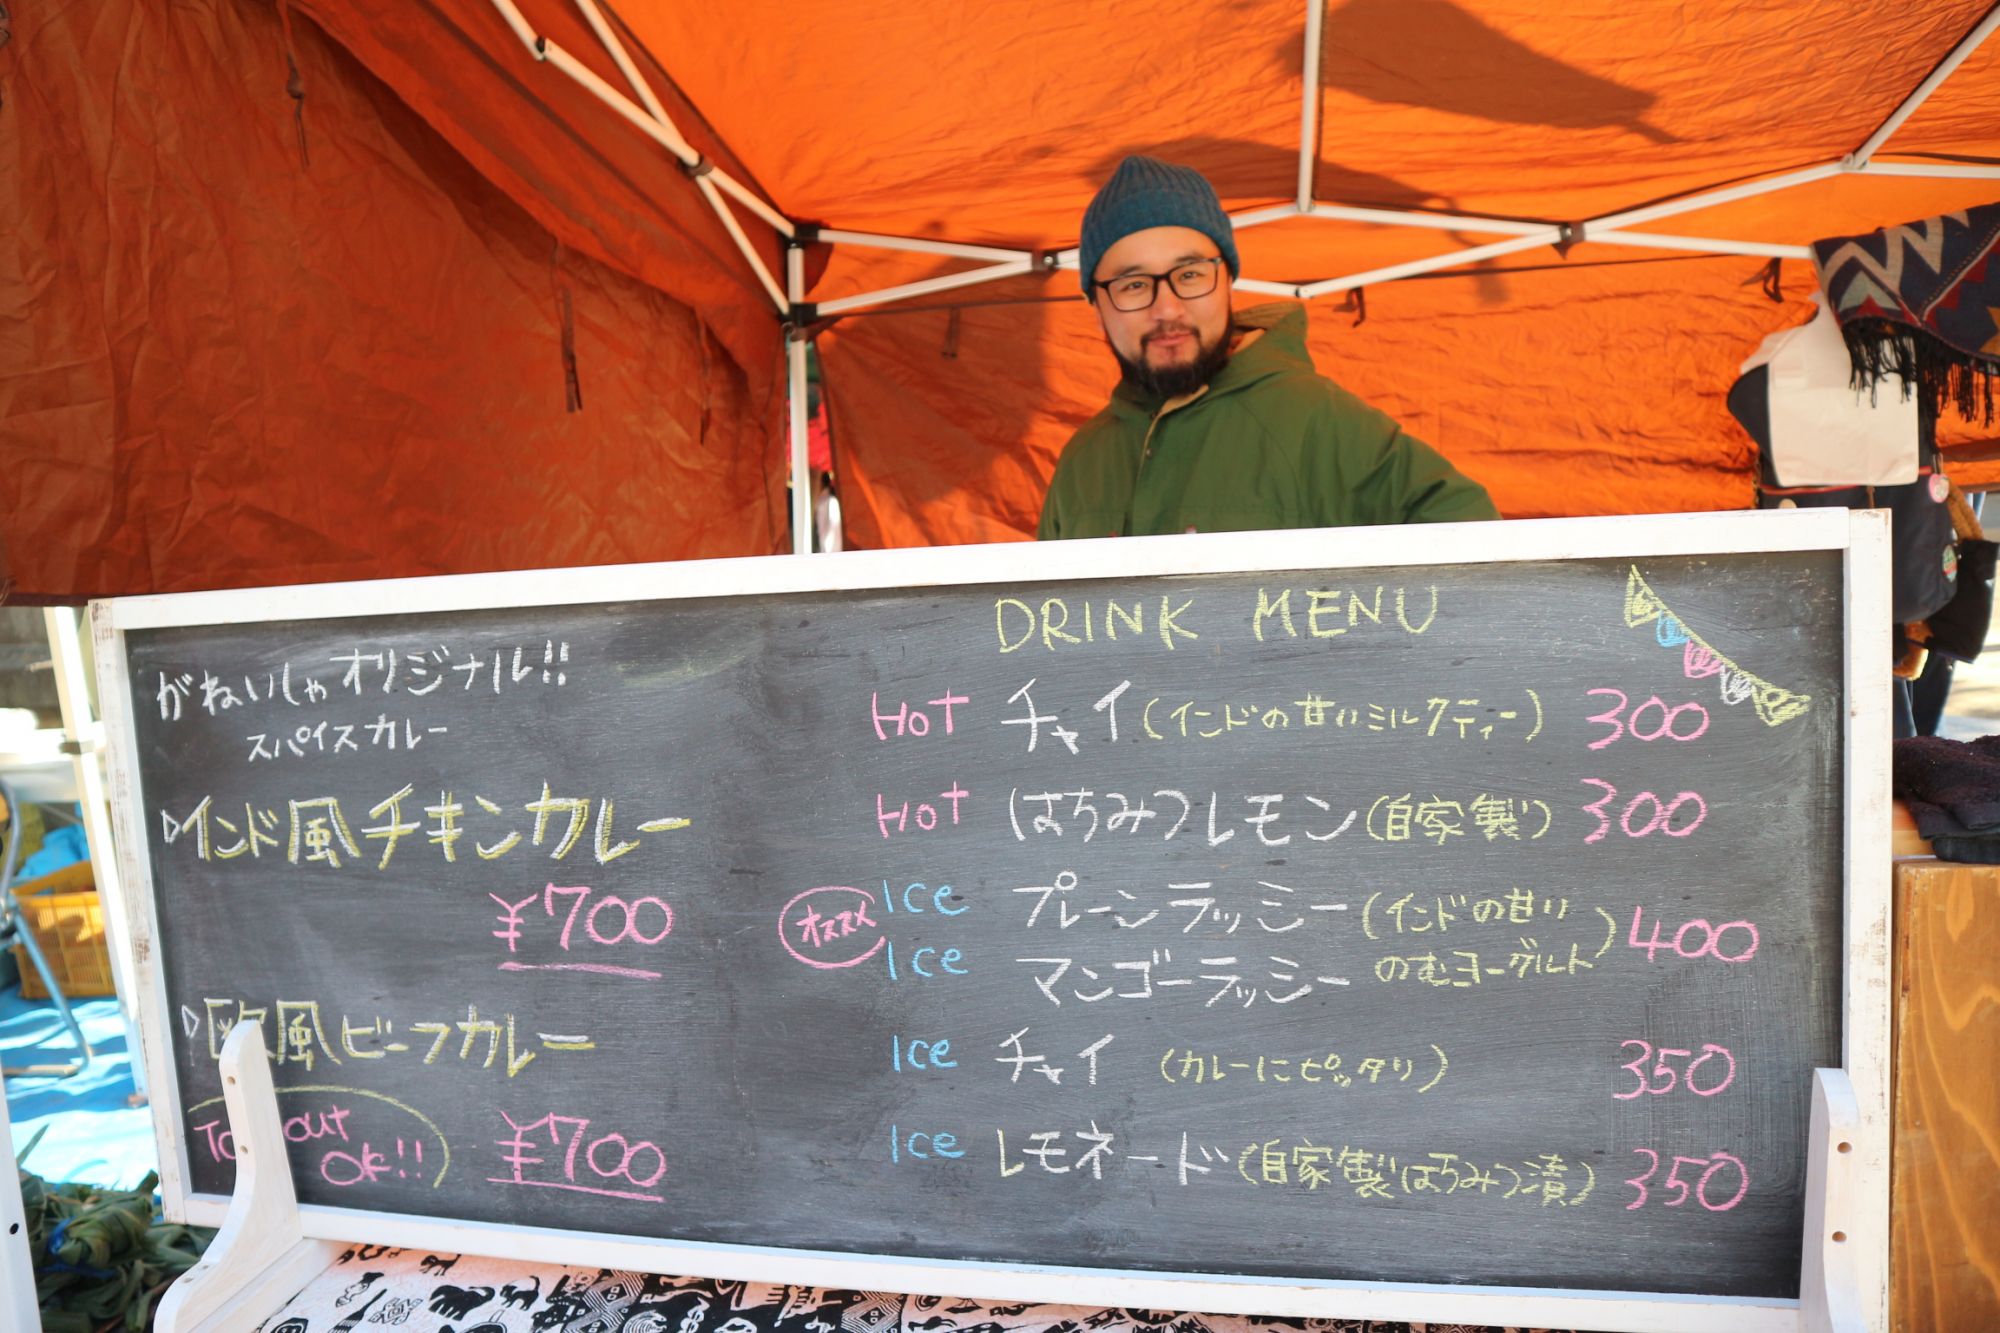 がねいしゃオリジナル!!
スパイスカレー
インド風チキンカレー
¥700
欧風ビーフカレー
out
OK!!
¥700
DRINK MENU
HOT チャイ(インドの甘いミルクティー) 300
HOT はちみつレモン(自家製) 300
オススメ
Ice プレーンラッシー(インドの甘い
Ice マンゴーラッシー のむヨーグルト) 400
Ice チャイ (カレーにピッタリ) 350
Ice レモネード(自家製はちみつ漬) 350